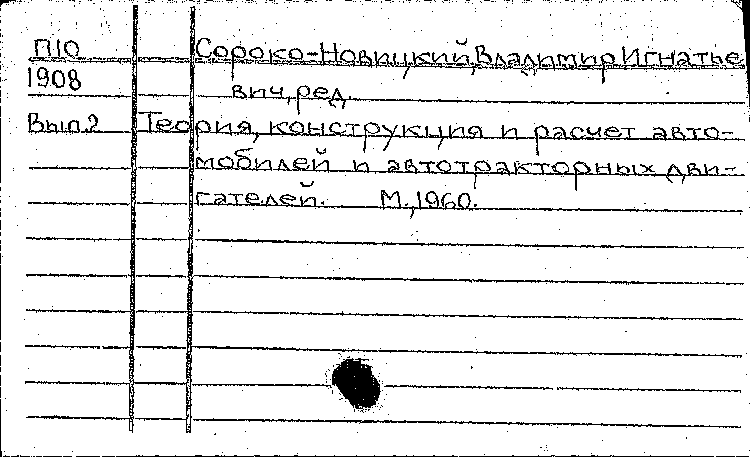 П10 Сороко-Новицкий, Владимир Игнатье
1908 вич, ред.
Вып.2 Теория, конструкция и расчет авто-
мобилей и автотракторных дви-
гателей. М., 1960.